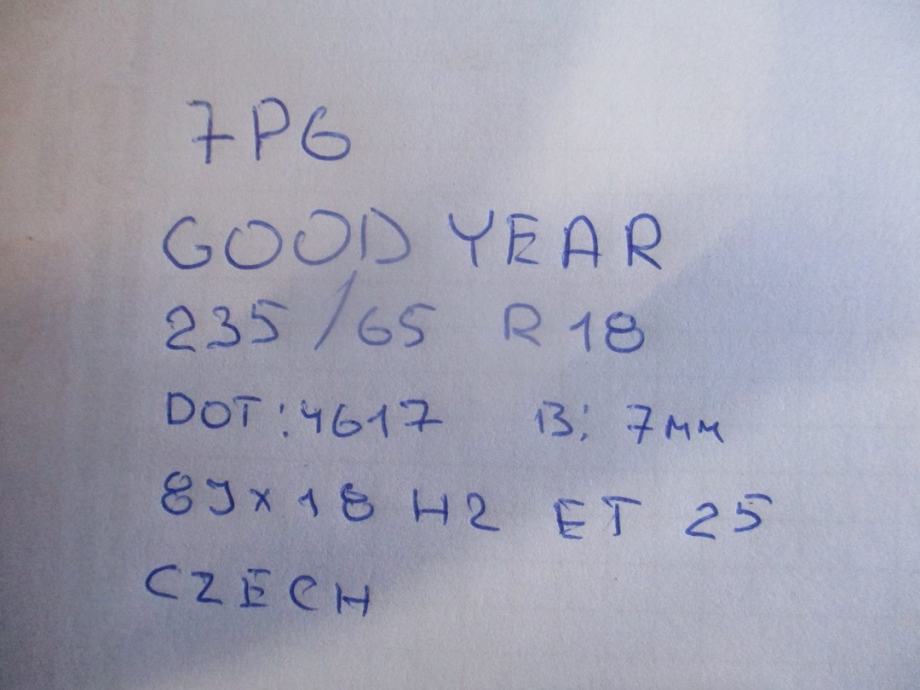 7PG
GOOD YEAR
235/65 R18
DOT:4617 B: 7мм
8Jx18 H2 ET 25
CZECH